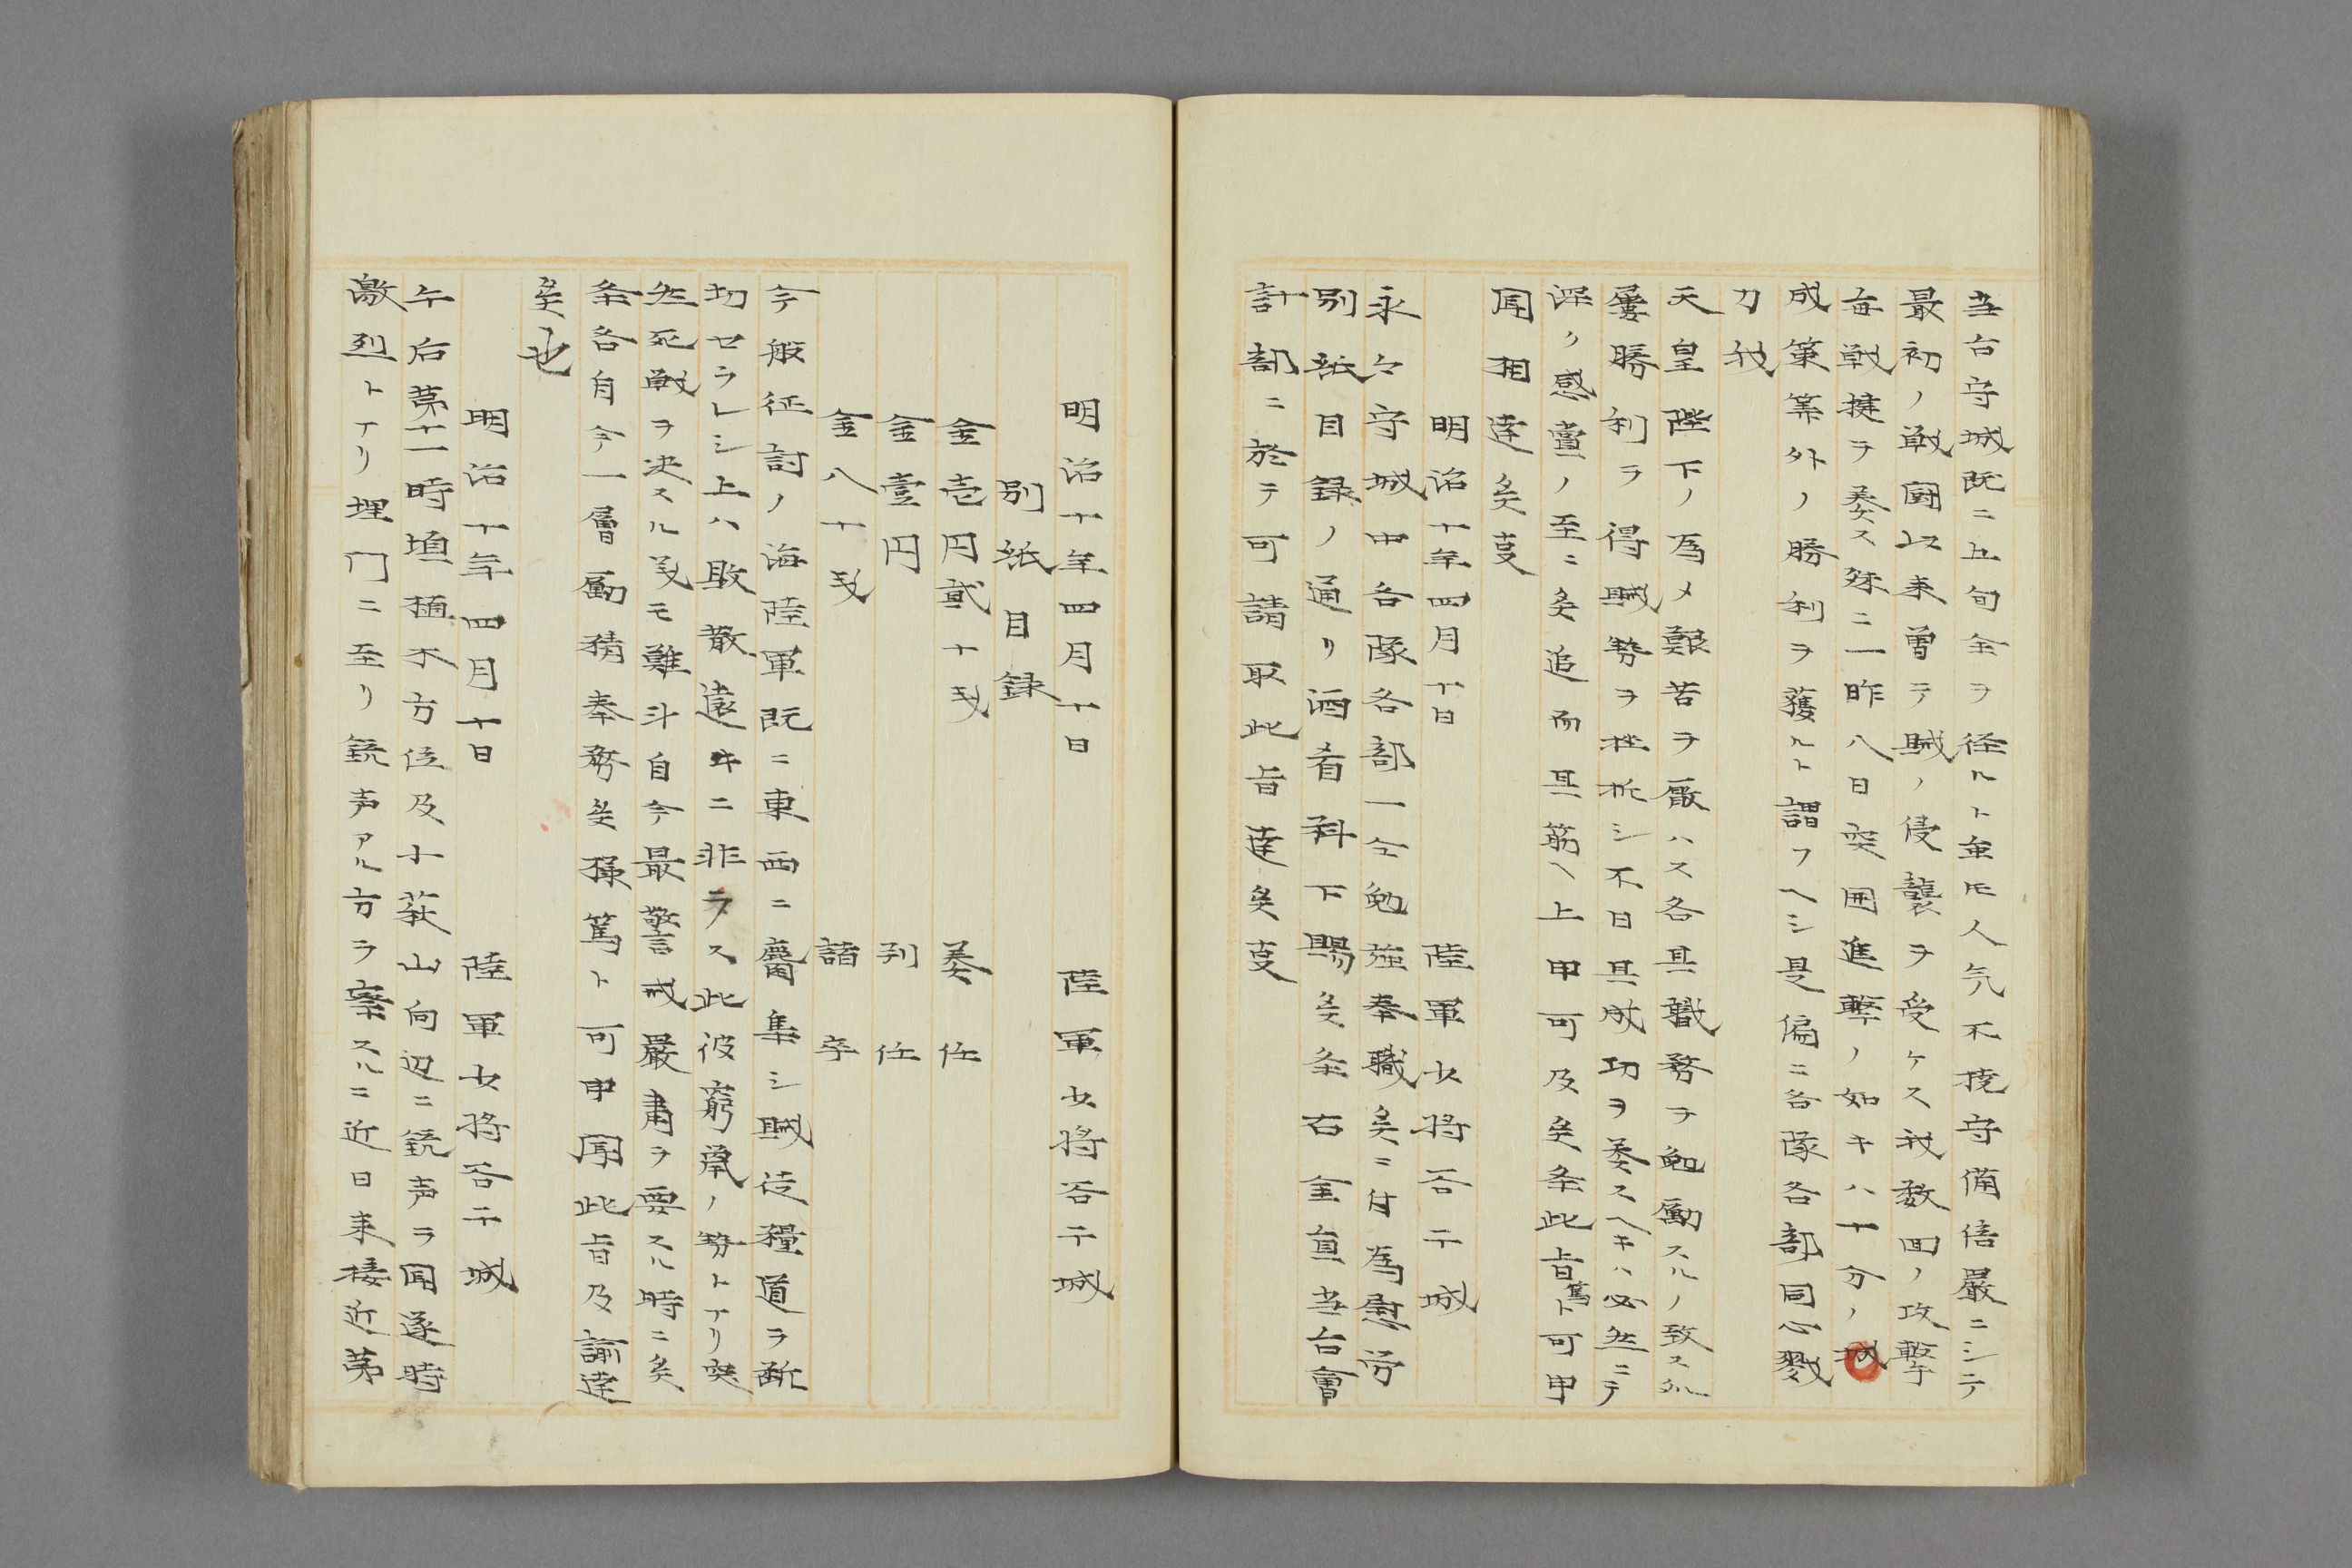 当台守城既ニ五旬余ヲ径ルト虽㔫人気不撓守備倍厳ニシテ
最初ノ戦闘以来曽テ賊ノ侵襲ヲ受ケス我数回ノ攻撃
毎戦捷ヲ奏ス殊ニ一昨八日突囲進撃ノ如キハ十分ノ城
成策筭外ノ勝利ヲ獲ルト謂フヘシ是偏ニ各隊各部同心戮
力我
天皇陛下ノ為メ艱苦ヲ厭ハス各其職務ヲ勉励スルノ致ス処
屡勝利ヲ得賊勢ヲ挫折シ不日其成功ヲ奏スヘキハ必然ニテ
深ク感賞ノ至ニ候追而其筋ヘ上申可及候条此旨篤ト可申
聞相達候叓
明治十年四月十日 陸軍少将谷干城
永々守城中各隊各部一仝勉強奉職候ニ付為慰労
別紙目録ノ通リ酒肴料下賜候条右金員当台会
計部ニ於テ可請取此旨達候叓
明治十年四月十日 陸軍少将谷干城
別紙目録
金壱円貳十戋 奏任
金壹円 判任
金八十戋 諸卒
今般征討ノ海陸軍既ニ東西ニ麕集シ賊徒糧道ヲ断
切セラレシ上ハ敗散遠キニ非ラス此彼窮鼠ノ勢トナリ突
然死戦ヲ决スル叓モ難斗自今最警戒厳粛ヲ要スル時ニ候
条各自今一層励精奉務候様篤ト可申聞此旨及諭達
候也
明治十年四月十日 陸軍少将谷干城
午后第十一時頃植木方位及小萩山向辺ニ銃声ヲ聞遂時
激烈トナリ埋門ニ至リ銃声アル方ヲ案スルニ近日来接近第